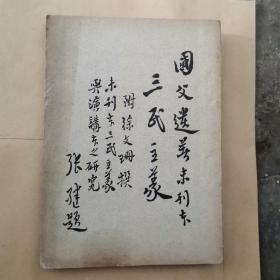 國父遺著未刊本
三民主義
附徐文珊撰
未刊本三民主義
與演講本之研究
張繼題